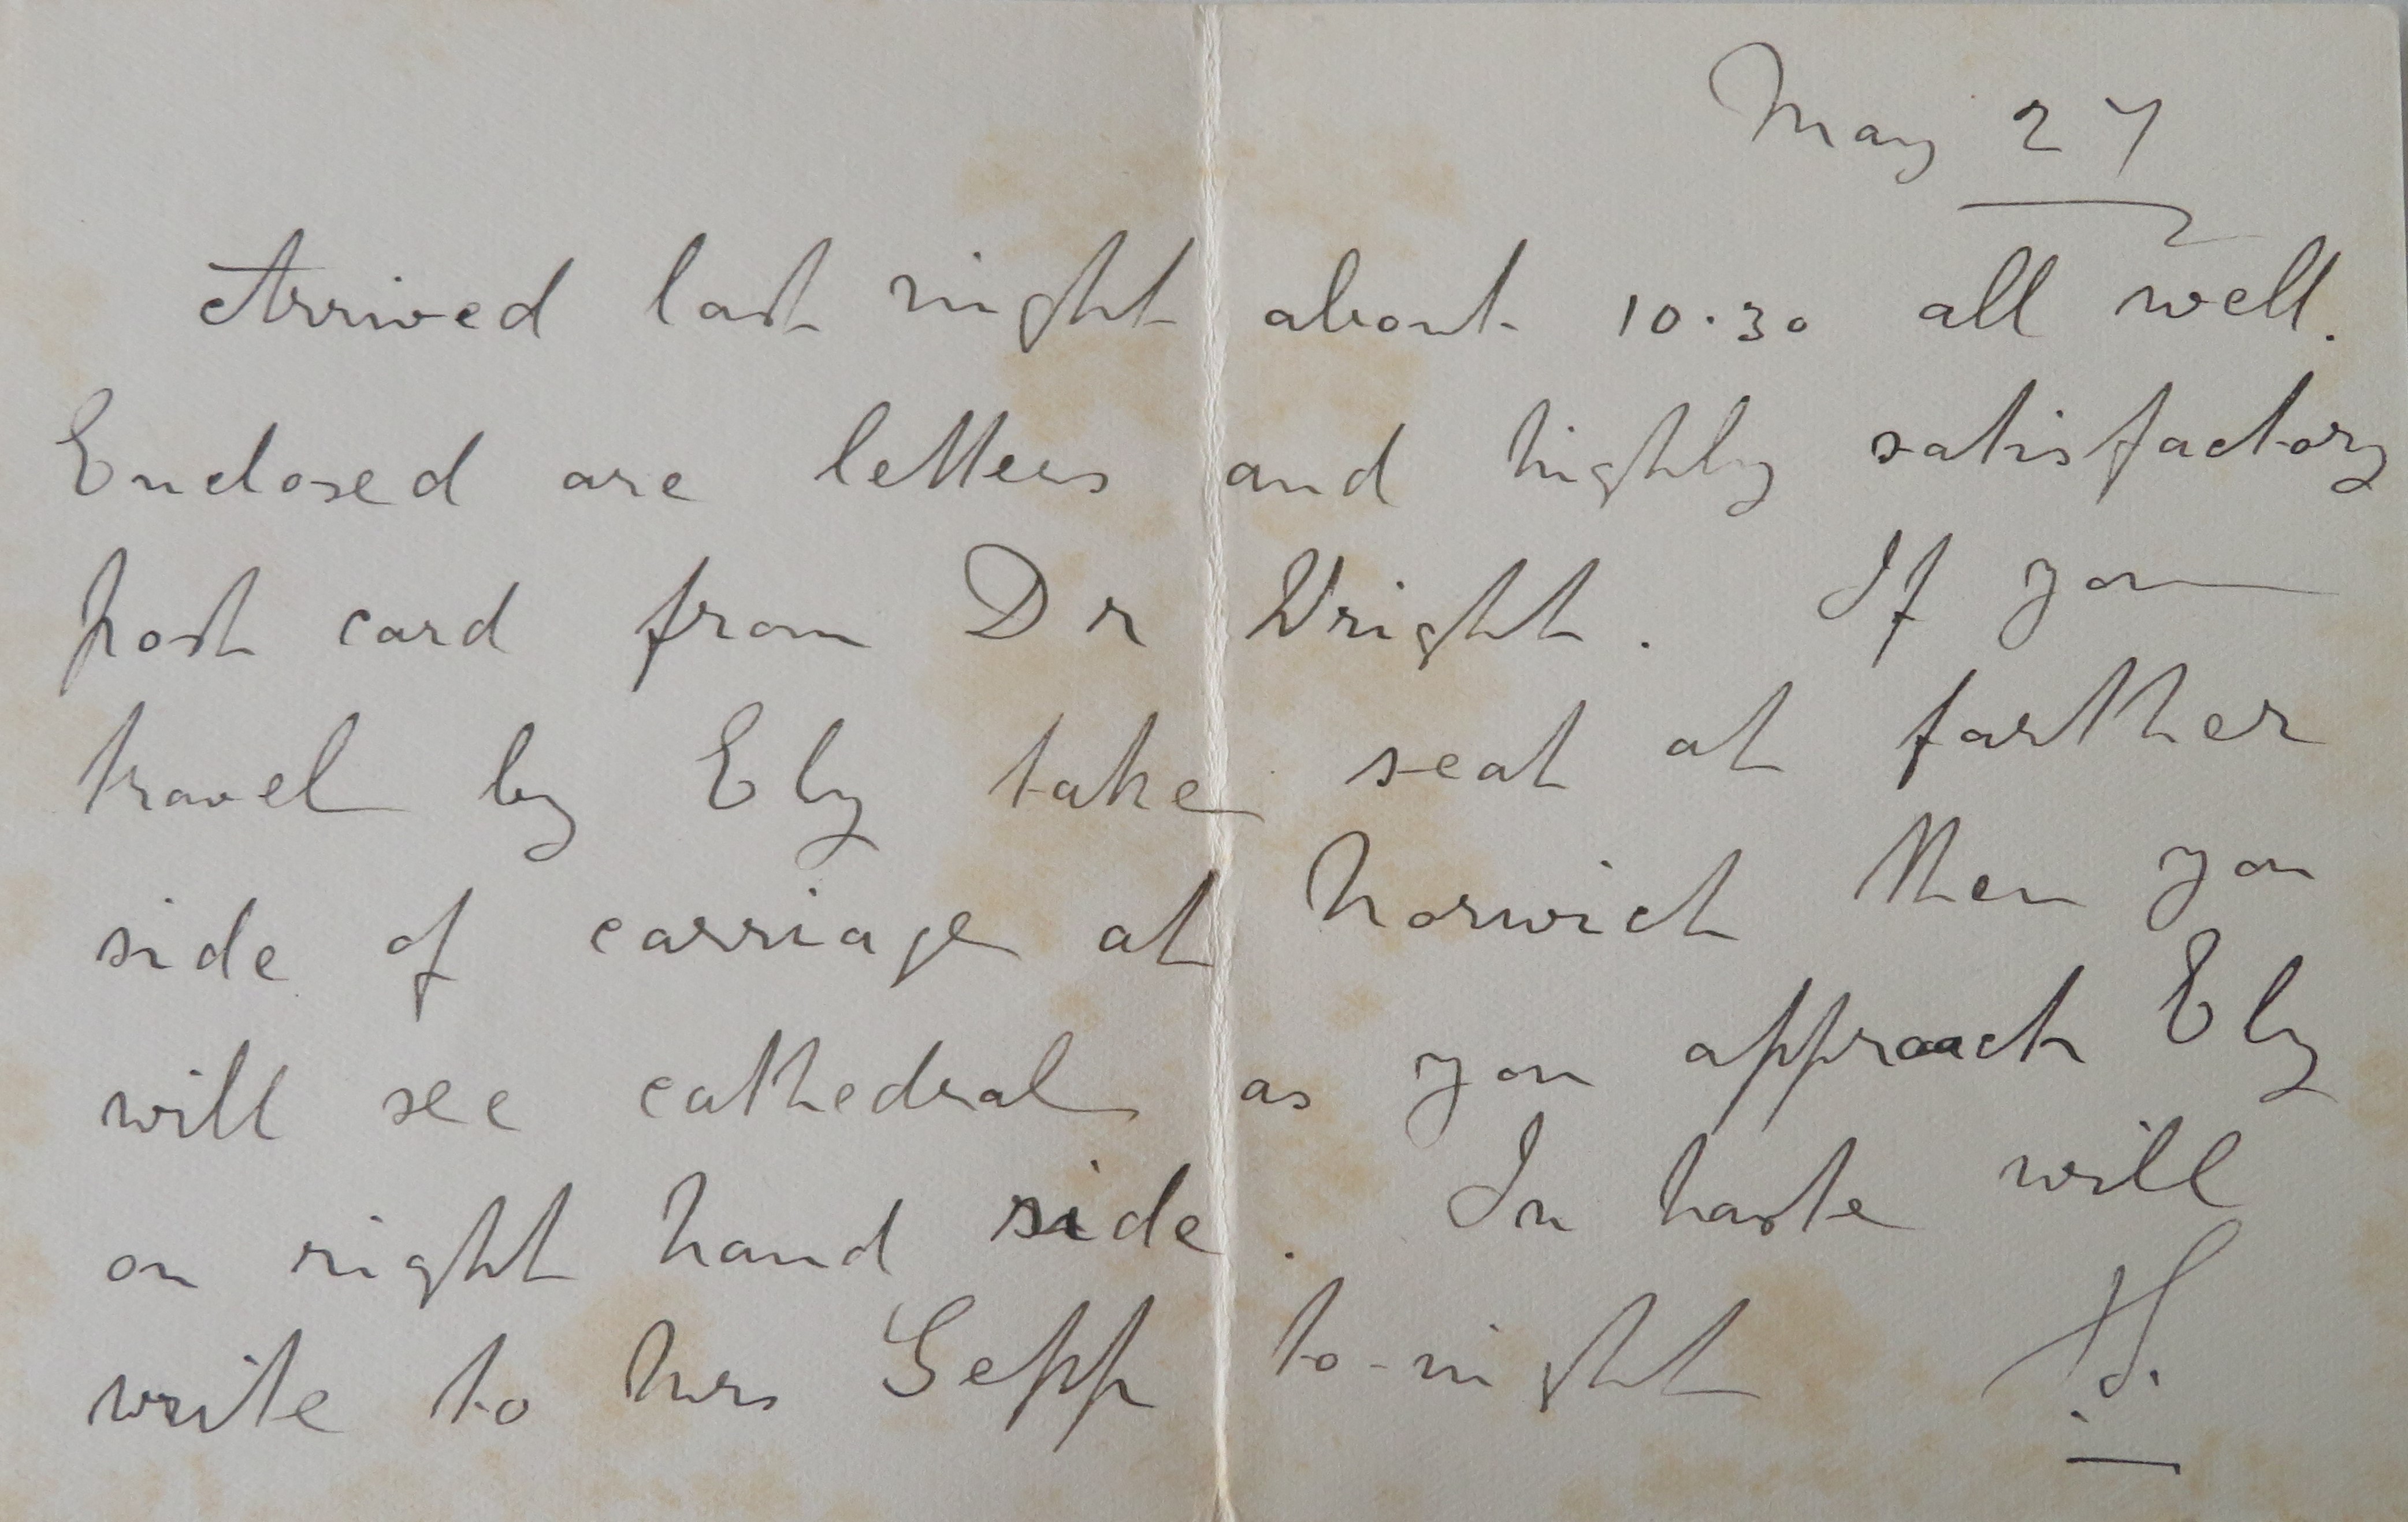 May 27
Arrived last night about 10.30 all well.
Enclosed are letters and highly satisfactory
post card from Dr Wright. If you
travel by Ely take seat at farther
side of carriage at Norwich then you
will see cathedral as you approach Ely
on right hand side. In haste will
write to Mrs Gepp to-night H.